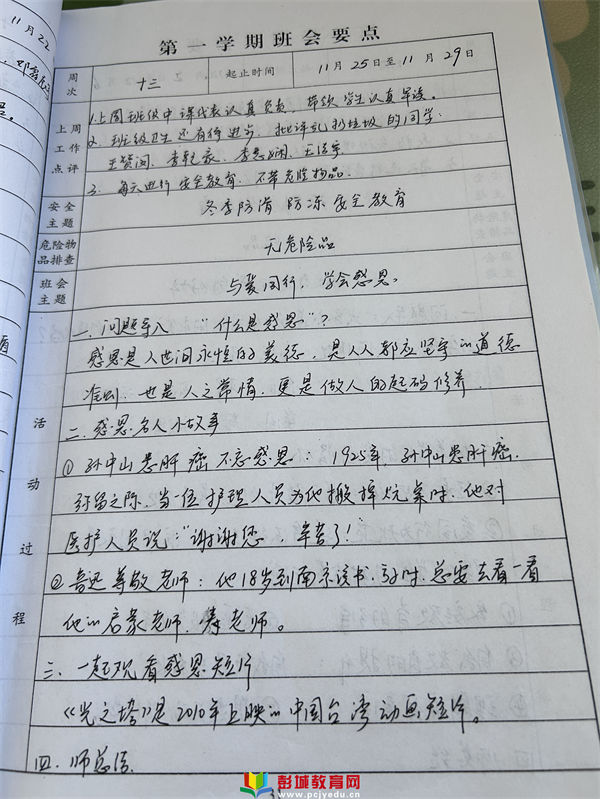 11月22
第一学期班会要点
周次 十三 起止时间 11月25日至11月29日
上周工作点评
1.上周班级中课代表认真负责,带领学生认真早读。
2.班级卫生还有待进步,批评乱扔垃圾的同学:
3.每天进行安全教育,不带危险物品.
安全主题 冬季防滑 防冻 安全教育
危险物品排查 无危险品
班会主题 与爱同行,学会感恩。
活动过程
一.问题导入 "什么是感恩"?
感恩是人世间永恒的美德,是人人都应坚守的道德
准则,也是人之常情,更是做人的起码修养.
二.感恩名人小故事
①孙中山患肝癌不忘感恩:1925年,孙中山患肝癌.
弥留之际,当一位护理人员为他搬掉炕桌时,他对
医护人员说:"谢谢您,辛苦了!"
②鲁迅尊敬老师:他18岁到南京读书,放时,总要去看一看
他的启蒙老师,寿老师。
三.一起观看感恩短片
《光之塔》是2010年上映的中国台湾动画短片。
四.师总结.
彭城教育网
www.pcjyedu.cn